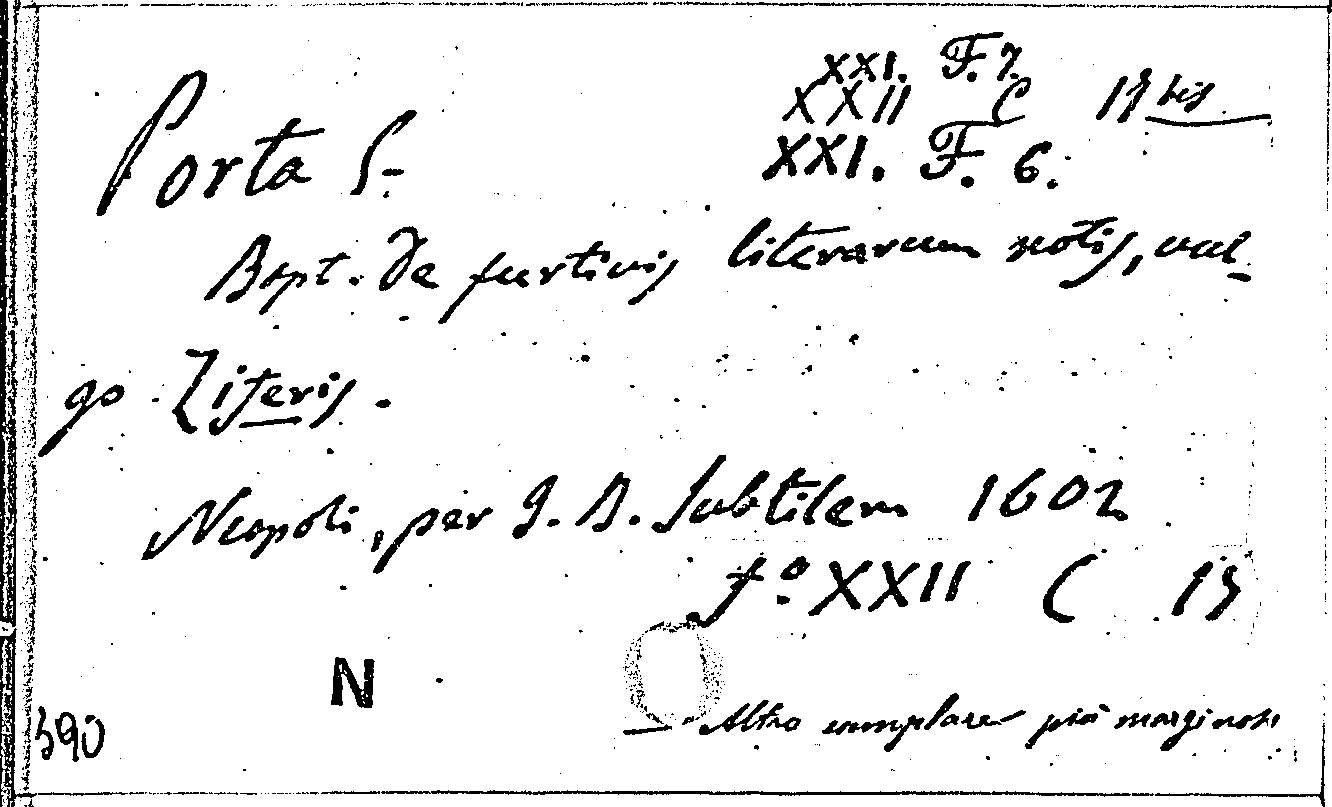 XXI. F. 7.
XXII C 19 bis
XXI. F. 6.
Porta J.
Bapt. De furtivis literarum notis, vul-
go Ziferis.
Neapoli, per J. B. Subtilem 1602
f.º XXII C 19
N
— Altro esemplare più marginoso
390